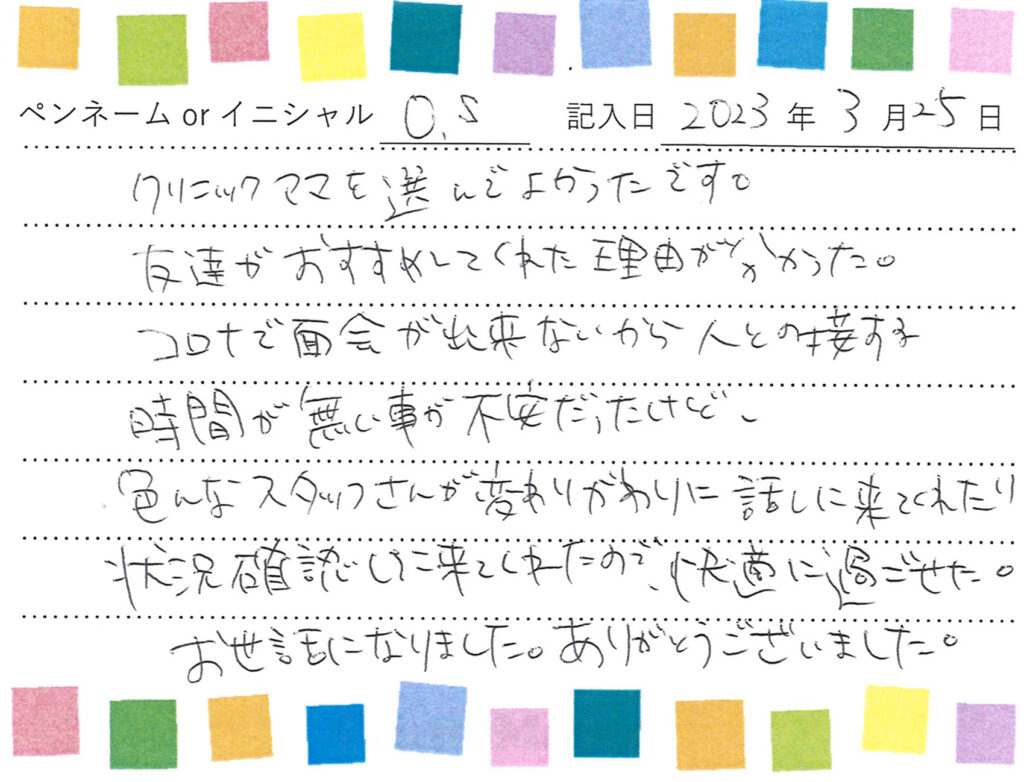 ペンネーム or イニシャル O.S 記入日 2023年3月25日
クリニックママを選んでよかったです。
友達がおすすめしてくれた理由がわかった。
コロナで面会が出来ないから人との接する
時間が無い事が不安だったけど、
色んなスタッフさんが変わりがわりに話しに来てくれたり
状況確認しに来てくれたので、快適に過ごせた。
お世話になりました。ありがとうございました。